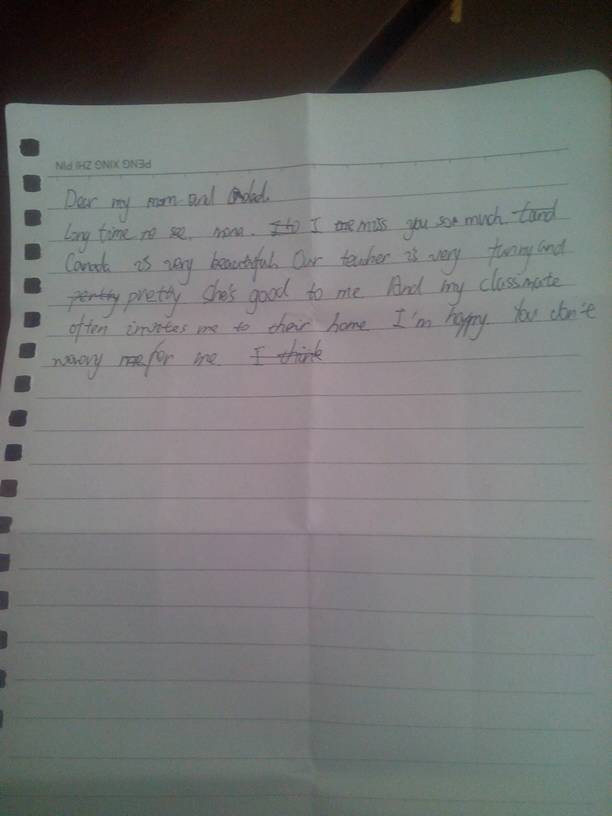 PENG XING ZHI PIN
Dear my mom and dad.
Long time no see. I miss you so much.
Canada is very beautiful. Our teacher is very funny and
pretty She's good to me And my classmate
often invites me to their home I'm happy You don't
worry for me I think